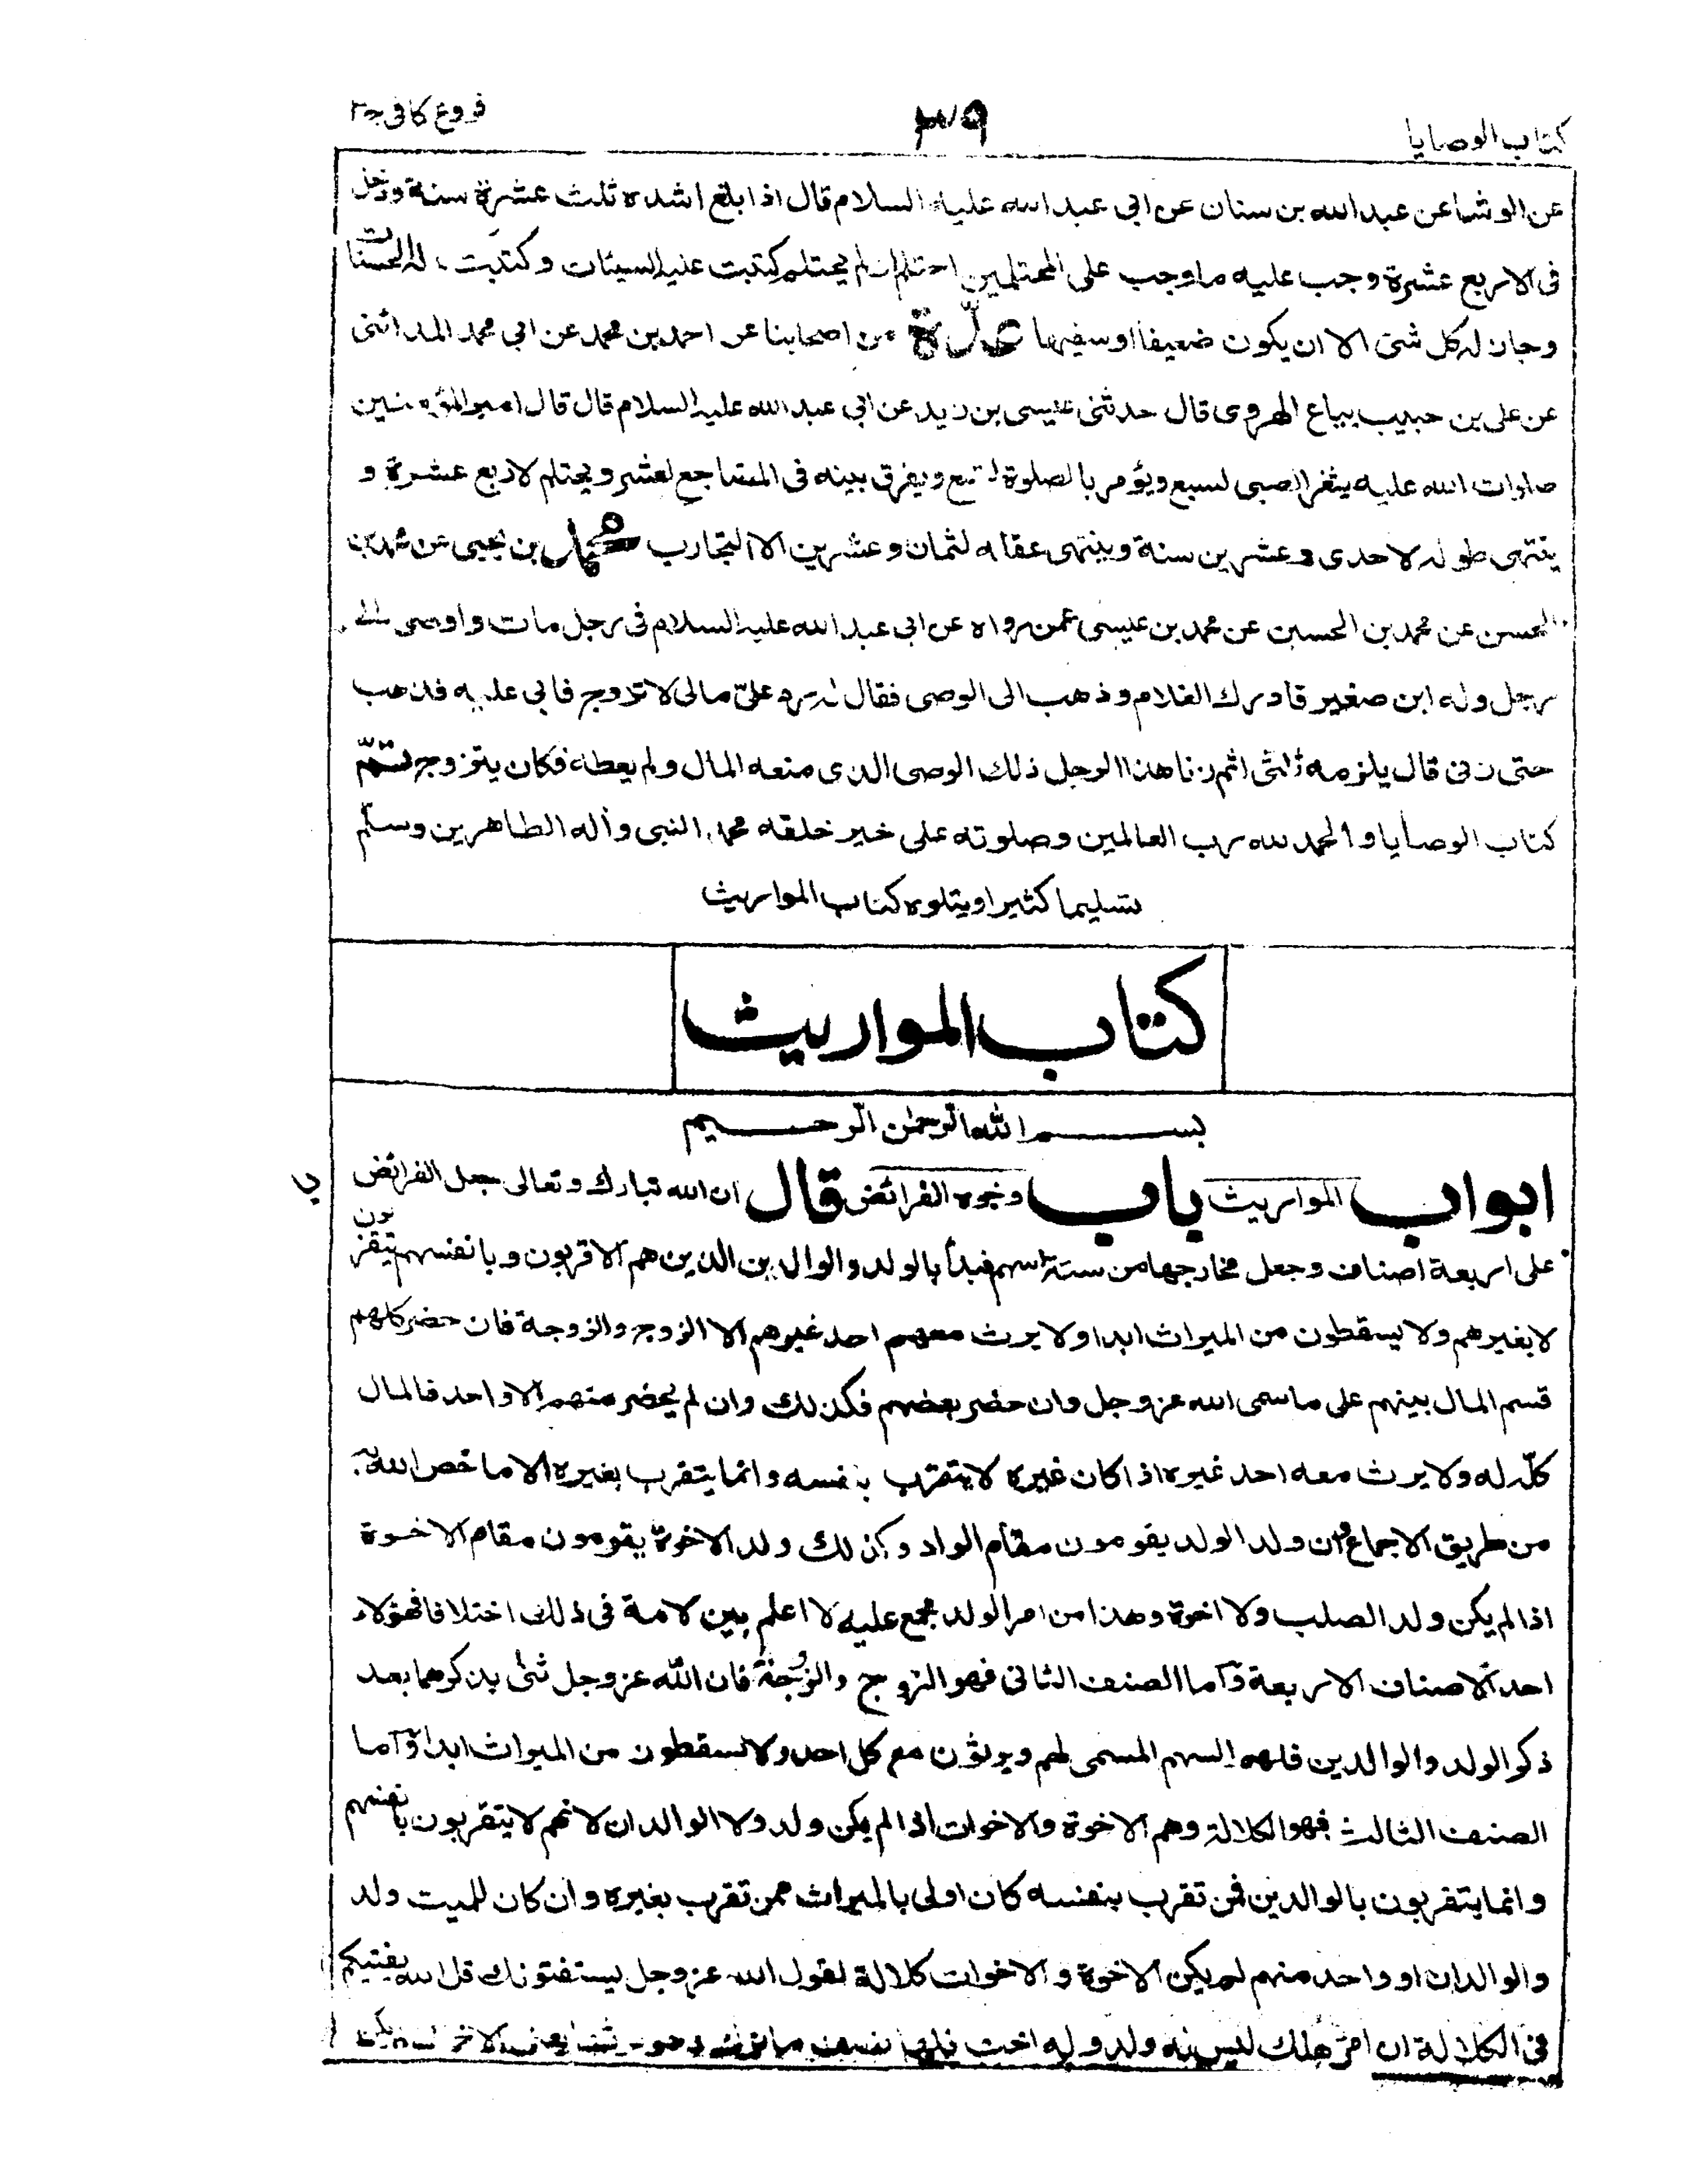 كتاب الوصايا
٣٧٩
فروع كافى ج٣
عن الوشا عن عبدالله بن سنان عن ابى عبدالله عليه السلام قال اذا بلغ اشده ثلث عشرة سنة ودخل
فى الاربع عشرة وجب عليه ما وجب على المحتلمين احتلم ام لم يحتلم كتبت عليه السيئات وكتبت له الحسنات
وجاز له كل شئ الا ان يكون ضعيفا او سفيها عدّة من اصحابنا عن احمد بن محمد عن ابى محمد المدائنى
عن على بن حبيب بياع الهروى قال حدثنى عيسى بن زيد عن ابى عبد الله عليه السلام قال قال امير المؤمنين
صلوات الله عليه يثغر الصبى لسبع ويؤمر بالصلوة لتسع ويفرق بينه فى المضاجع لعشر ويحتلم لاربع عشرة و
ينتهى طوله لاحدى وعشرين سنة وينتهى عقله لثمان وعشرين الا التجارب محمد بن يحيى عن محمد بن
الحسن عن محمد بن الحسين عن محمد بن عيسى عمن رواه عن ابى عبد الله عليه السلام فى رجل مات واوصى الى
رجل وله ابن صغير فادرك الغلام وذهب الى الوصى فقال له رد علىّ مالى لاتزوج فابى عليه فذهب
حتى زنى قال يلزمه ثلثى اثم زنا هذا الرجل ذلك الوصى الذى منعه المال ولم يعطه فكان يتزوج تمّ
كتاب الوصايا والحمد لله رب العالمين وصلوته على خير خلقه محمد النبى وآله الطاهرين وسلّم
تسليما كثيرا ويتلوه كتاب المواريث
كتاب المواريث
بسم الله الرحمن الرحيم
ابواب المواريث باب وجوه الفرائض قال ان الله تبارك وتعالى جعل الفرائض
على اربعة اصناف وجعل مخارجها من ستة اسهم فبدأ بالولد والوالدين الذين هم الاقربون وبانفسهم يتقربون
لا بغيرهم ولا يسقطون من الميراث ابدا ولا يرث معهم احد غيرهم الا الزوج والزوجة فان حضر كلهم
قسم المال بينهم على ما سمى الله عز وجل وان حضر بعضهم فكذلك وان لم يحضر منهم الا واحد فالمال
كلّه له ولا يرث معه احد غيره اذا كان غيره لا يتقرب بنفسه وانما يتقرب بغيره الا ما خص الله به
من طريق الاجماع وان ولد الولد يقومون مقام الولد وكذلك ولد الاخوة يقومون مقام الاخوة
اذا لم يكن ولد الصلب ولا اخوة وهذا من امر الولد مجمع عليه لا اعلم بين لامة فى ذلك اختلافا فهؤلاء
احد الاصناف الاربعة وأما الصنف الثانى فهو الزوج والزوجة فان الله عز وجل ثنى بذكرهما بعد
ذكر الولد والوالدين فلهم السهم المسمى لهم ويرثون مع كل احد ولا يسقطون من الميراث ابدا وأما
الصنف الثالث فهو الكلالة وهم الاخوة والاخوات اذا لم يكن ولد ولا الوالدان لانهم لا يتقربون بانفسهم
وانما يتقربون بالوالدين فمن تقرب بنفسه كان اولى بالميراث ممن تقرب بغيره وان كان للميت ولد
والوالدان او واحد منهم لم يكن الاخوة والاخوات كلالة لقول الله عز وجل يستفتونك قل الله يفتيكم
فى الكلالة ان امرؤ هلك ليس له ولد وله اخت فلها نصف ما ترك وهو يرثها